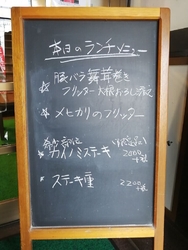 本日のランチメニュー
豚バラ舞茸巻き
フリッター 大根おろしソース
☆ メヒカリのフリッター
希少部位 (限定品)
☆ カイノミステーキ 2000+税
☆ ステーキ重 2200+税